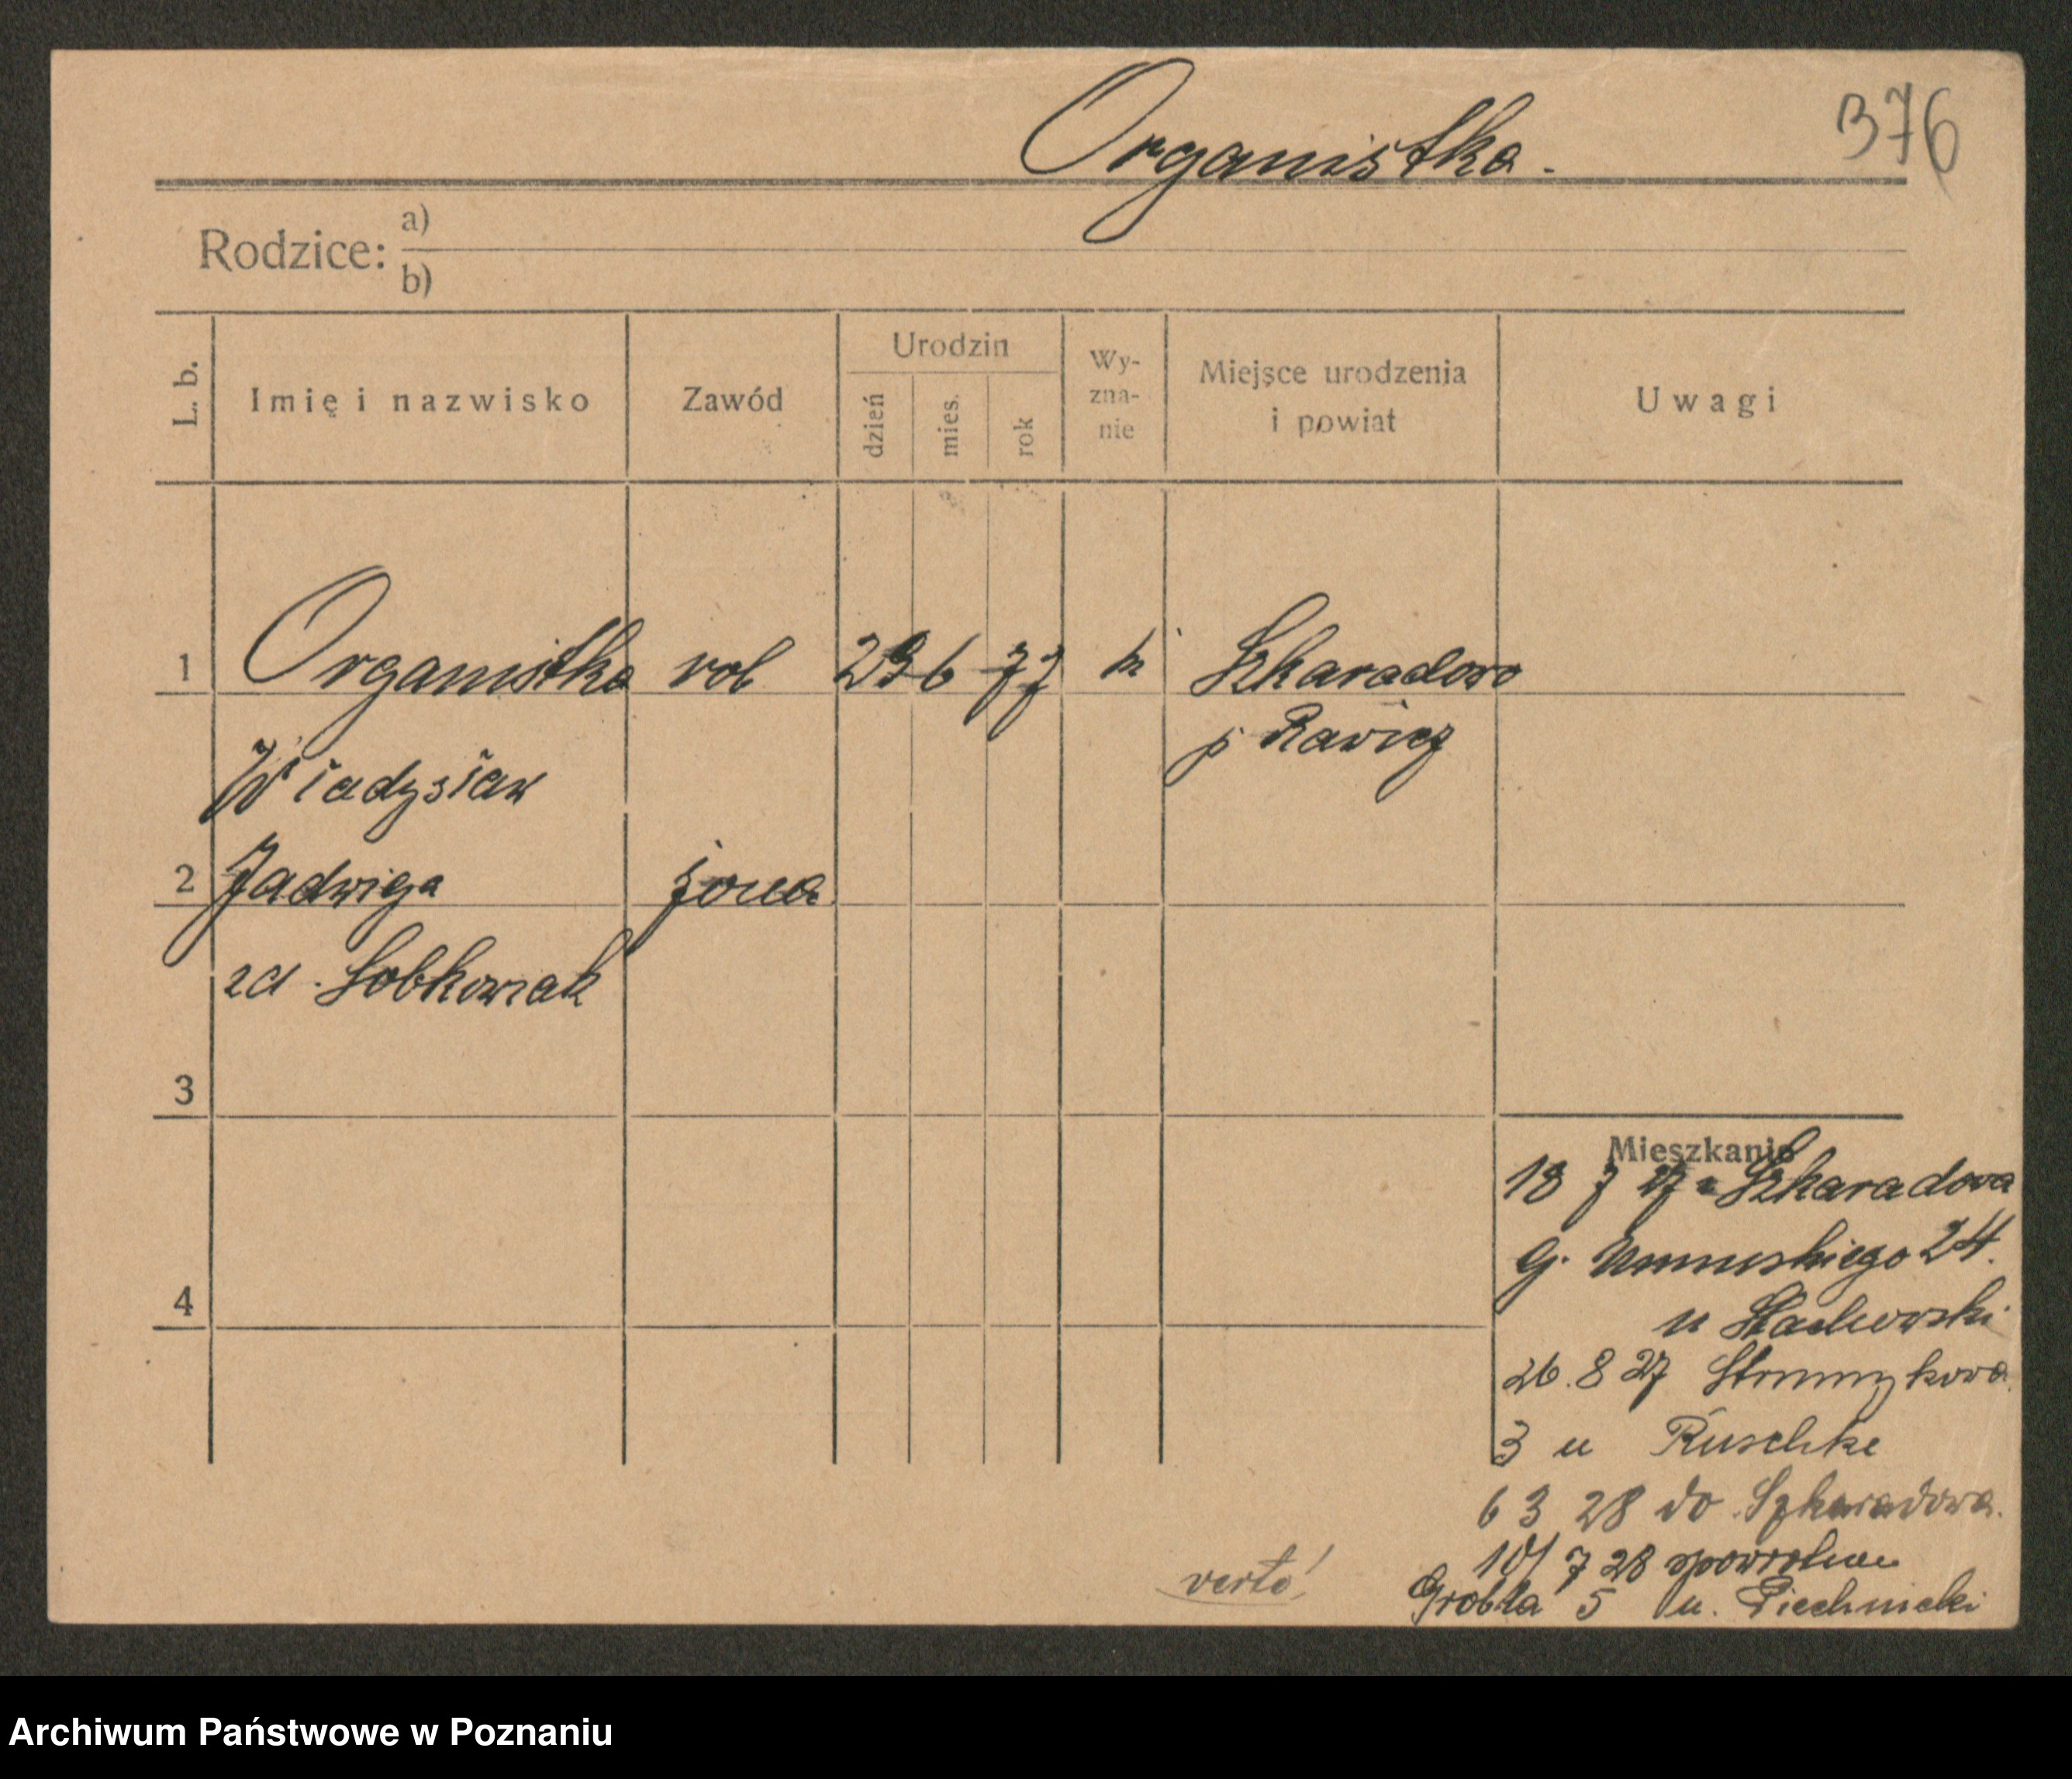 Organistka.
376
Rodzice: a)
b)
L. b.
Imię i nazwisko
Zawód
Urodzin
dzień
mies.
rok
Wy-
zna-
nie
Miejsce urodzenia
i powiat
Uwagi
1 Organistka rob 6 77 k Szkaradowo
p Rawicz
Władysław
2 Jadwiga żona
zd. Sobkowiak
3
4
Mieszkanie
18 7 27 z Szkaradowa
g. 24.
u
26. 8 27 Strumykowa
3 u Ruschke
6 3 28 do Szkaradowa.
10/7 28 spowrotem
Grobla 5 u. Piechnicki
verte!
Archiwum Państwowe w Poznaniu